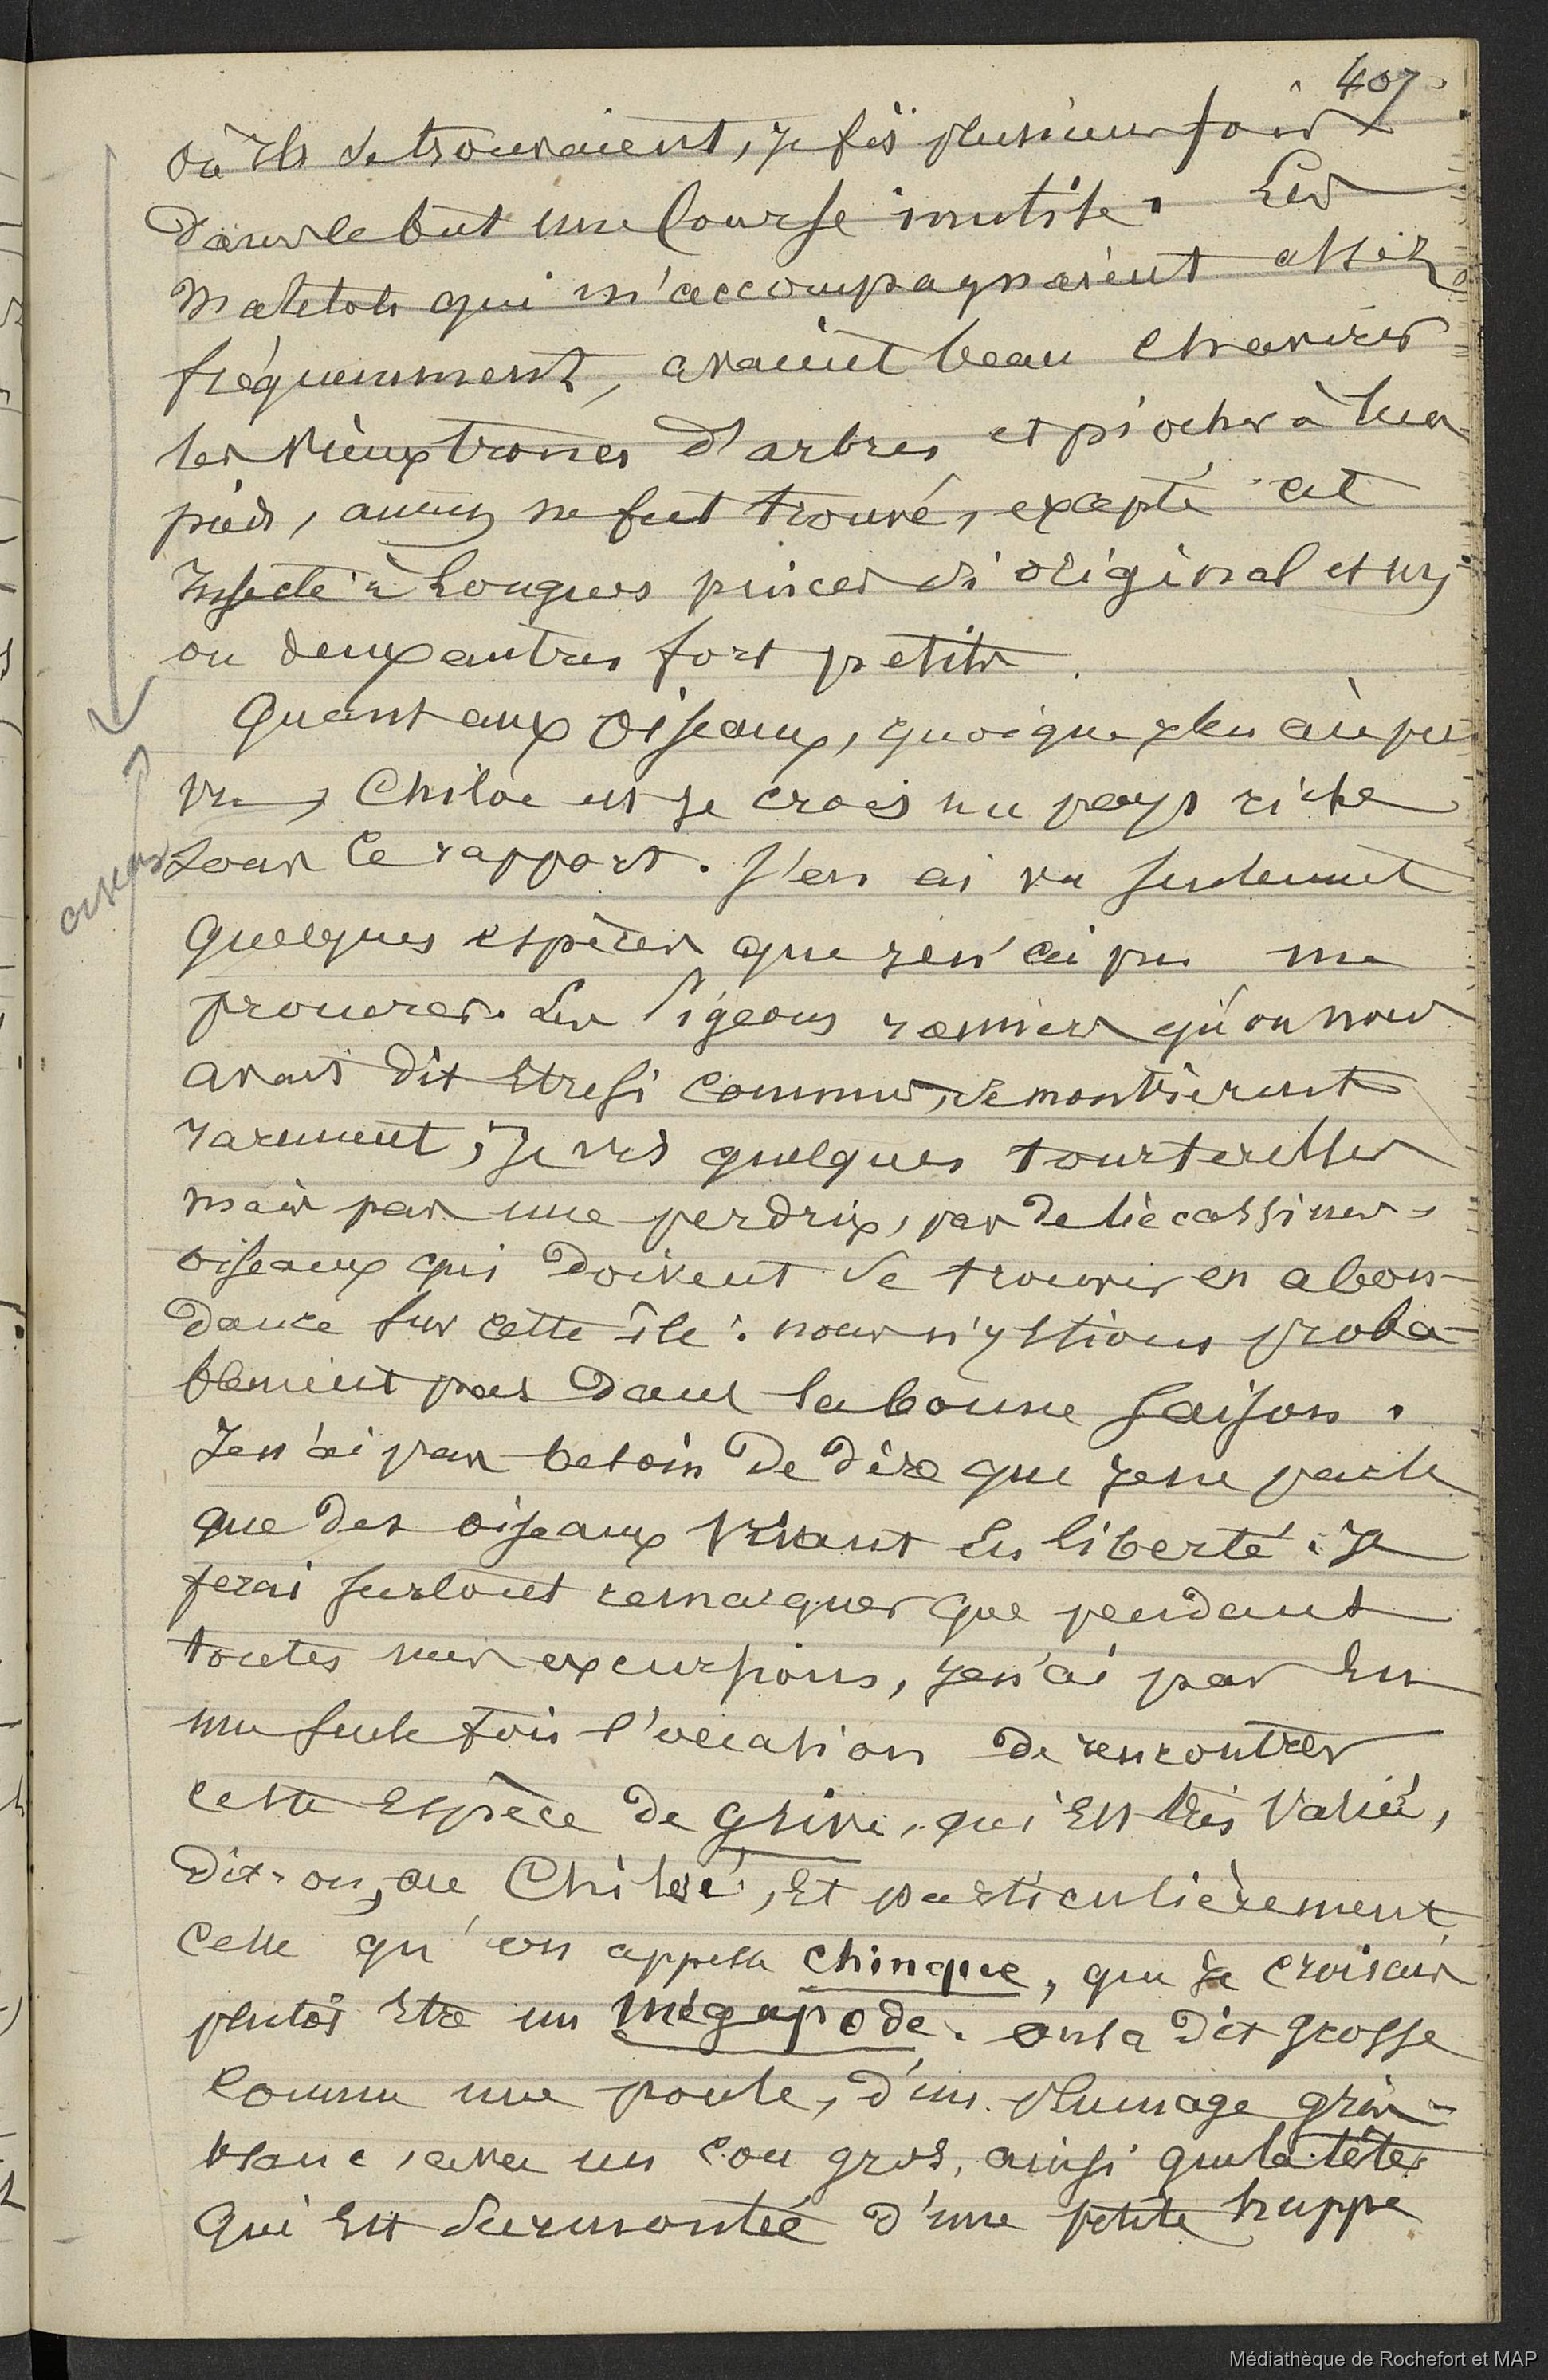 407
où ils se trouvaient, je fis plusieurs fois
dans le but une Course inutile. Les
matelots qui m'accompagnaient assez
fréquemment, avaient beau chavirer
les vieux troncs d'arbres et piocher à leur
pied, aucun ne fut trouvé, excepté cet
Insecte à longues pinces si original et un
ou deux autres fort petits.
Quant aux Oiseaux, quoique j'en aie peu
vu, Chiloe est je crois un pays riche
sous ce rapport. J'en ai vu seulement
quelques espèces que je n'ai pu me
procurer. Les Pigeons ramiers qu'on nous
avait dit être si communs, se montrèrent
rarement, Je vis quelques tourterelles
mais pas une perdrix, pas de bécassines,
oiseaux qui doivent se trouver en abon-
dance sur cette île : nous n'y étions proba-
blement pas dans la bonne saison.
Je n'ai pas besoin de dire que je ne parle
que des oiseaux vivant en liberté. Je
ferai surtout remarquer que pendant
toutes mes excursions, je n'ai pas eu
une seule fois l'occasion de rencontrer
cette espèce de grive, qui est très variée,
dit-on, au Chiloé, et particulièrement
celle qu'on appelle chinque, que je croirais
plutôt être un mégapode. on la dit grosse
comme une poule, d'un plumage gris-
blanc, avec un cou gros, ainsi que la tête
qui est surmontée d'une petite huppe
oiseaux
Médiathèque de Rochefort et MAP